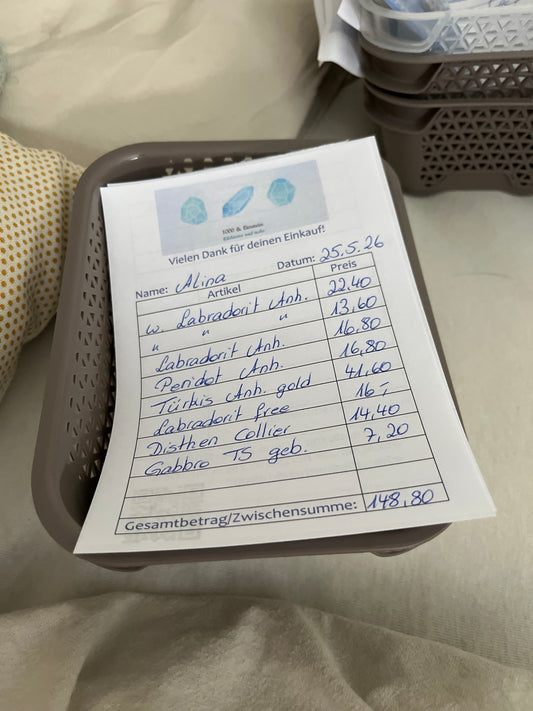 1000 & Einstein
Edelsteine und mehr
Vielen Dank für deinen Einkauf!
Name: Alina Datum: 25.5.26
Artikel Preis
w. Labradorit Anh. 22,40
" " " 13,60
Labradorit Anh. 16,80
Peridot Anh. 16,80
Türkis Anh. gold 41,60
Labradorit free 16,-
Disthen Collier 14,40
Gabbro TS geb. 7,20
Gesamtbetrag/Zwischensumme: 148,80